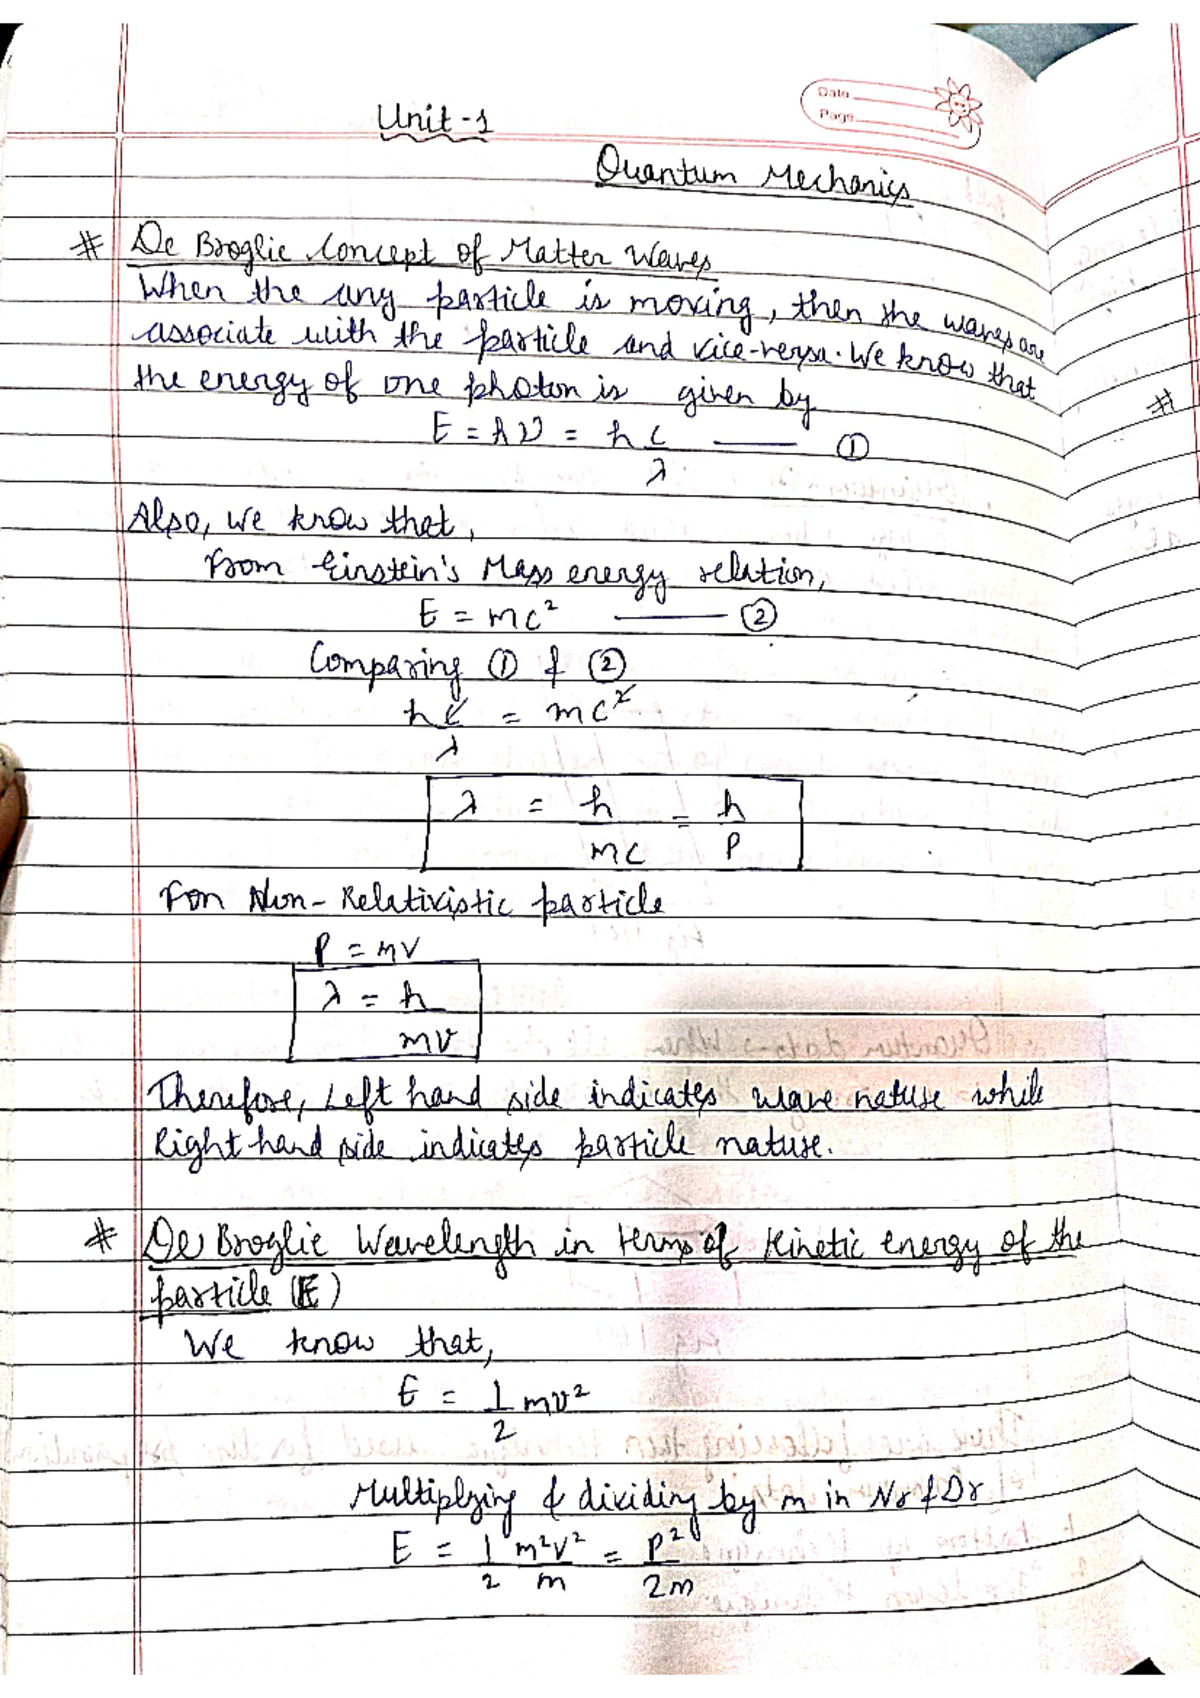 Date
Page
Unit-1
Quantum Mechanics
# De Broglie Concept of Matter Waves
When the any particle is moving, then the waves are
associate with the particle and vice-versa. We know that
the energy of one photon is given by
#
E = hν = h c/λ —— ①
Also, we know that,
From Einstein's Mass energy relation,
E = mc² —— ②
Comparing ① & ②
h c/λ = mc²
λ = h/mc = h/P
For Non-Relativistic particle
P = mv
λ = h/mv
Therefore, Left hand side indicates wave nature while
Right hand side indicates particle nature.
# De Broglie Wavelength in terms of Kinetic energy of the
particle (E)
We know that,
E = 1/2 mv²
Multiplying & dividing by m in Nr & Dr
E = 1/2 m²v²/m = P²/2m